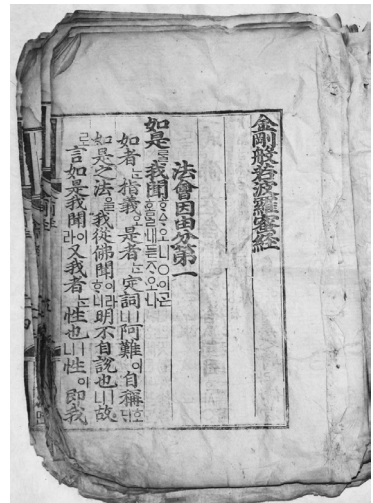 金剛般若波羅蜜經
法會因由分第一
如是ᄅᆞᆯ我聞ᄒᆞᅀᆞ오니○이ᄀᆞᆮ호ᄆᆞᆯ내듣ᄌᆞ오나
如者ᄂᆞᆫ指義오是者ᄂᆞᆫ定詞ㅣ니阿難이自稱호ᄃᆡ
如是之法을我從佛聞이라ᄒᆞ니明不自說也ㅣ니故
로言如是我聞이라又我者ᄂᆞᆫ性也ㅣ니性이即我